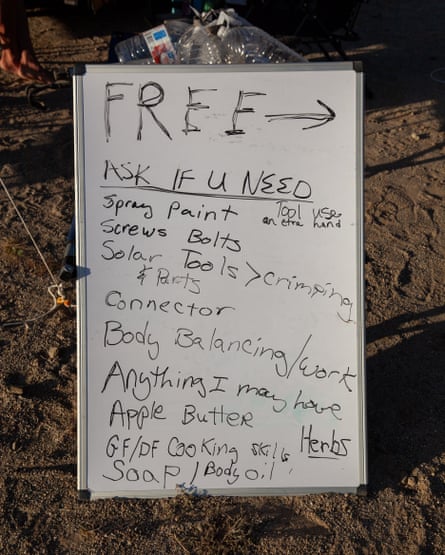 FREE →
ASK IF U NEED
Spray Paint
Tool use
an extra hand
Screws Bolts
Solar Tools > Crimping
& Parts
Connector
Body Balancing/work
Anything I may have
Apple Butter
GF/DF Cooking skills
Herbs
Soap / Body oil